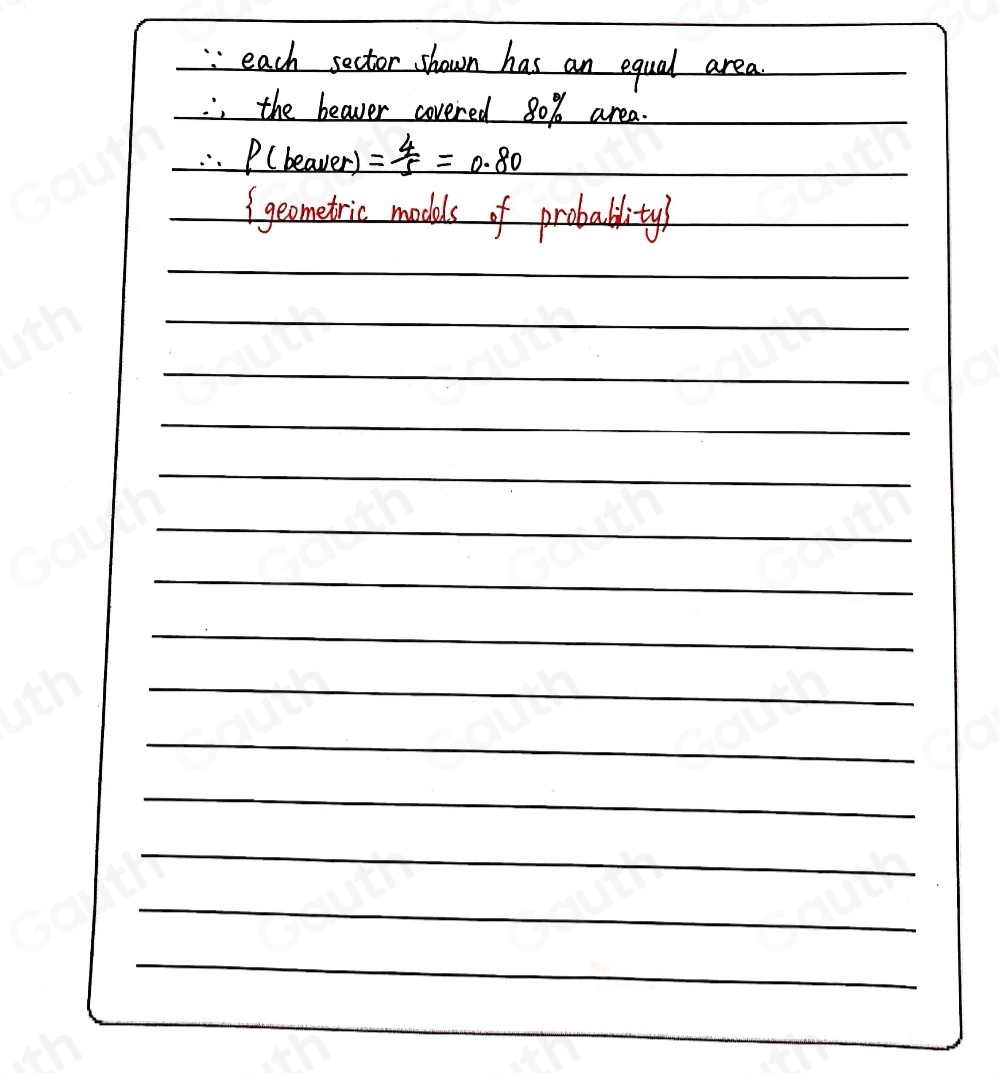 ∵ each sector shown has an equal area.
∴ the beaver covered 80% area.
∴ P(beaver) = 4/5 = 0.80
{geometric models of probability}